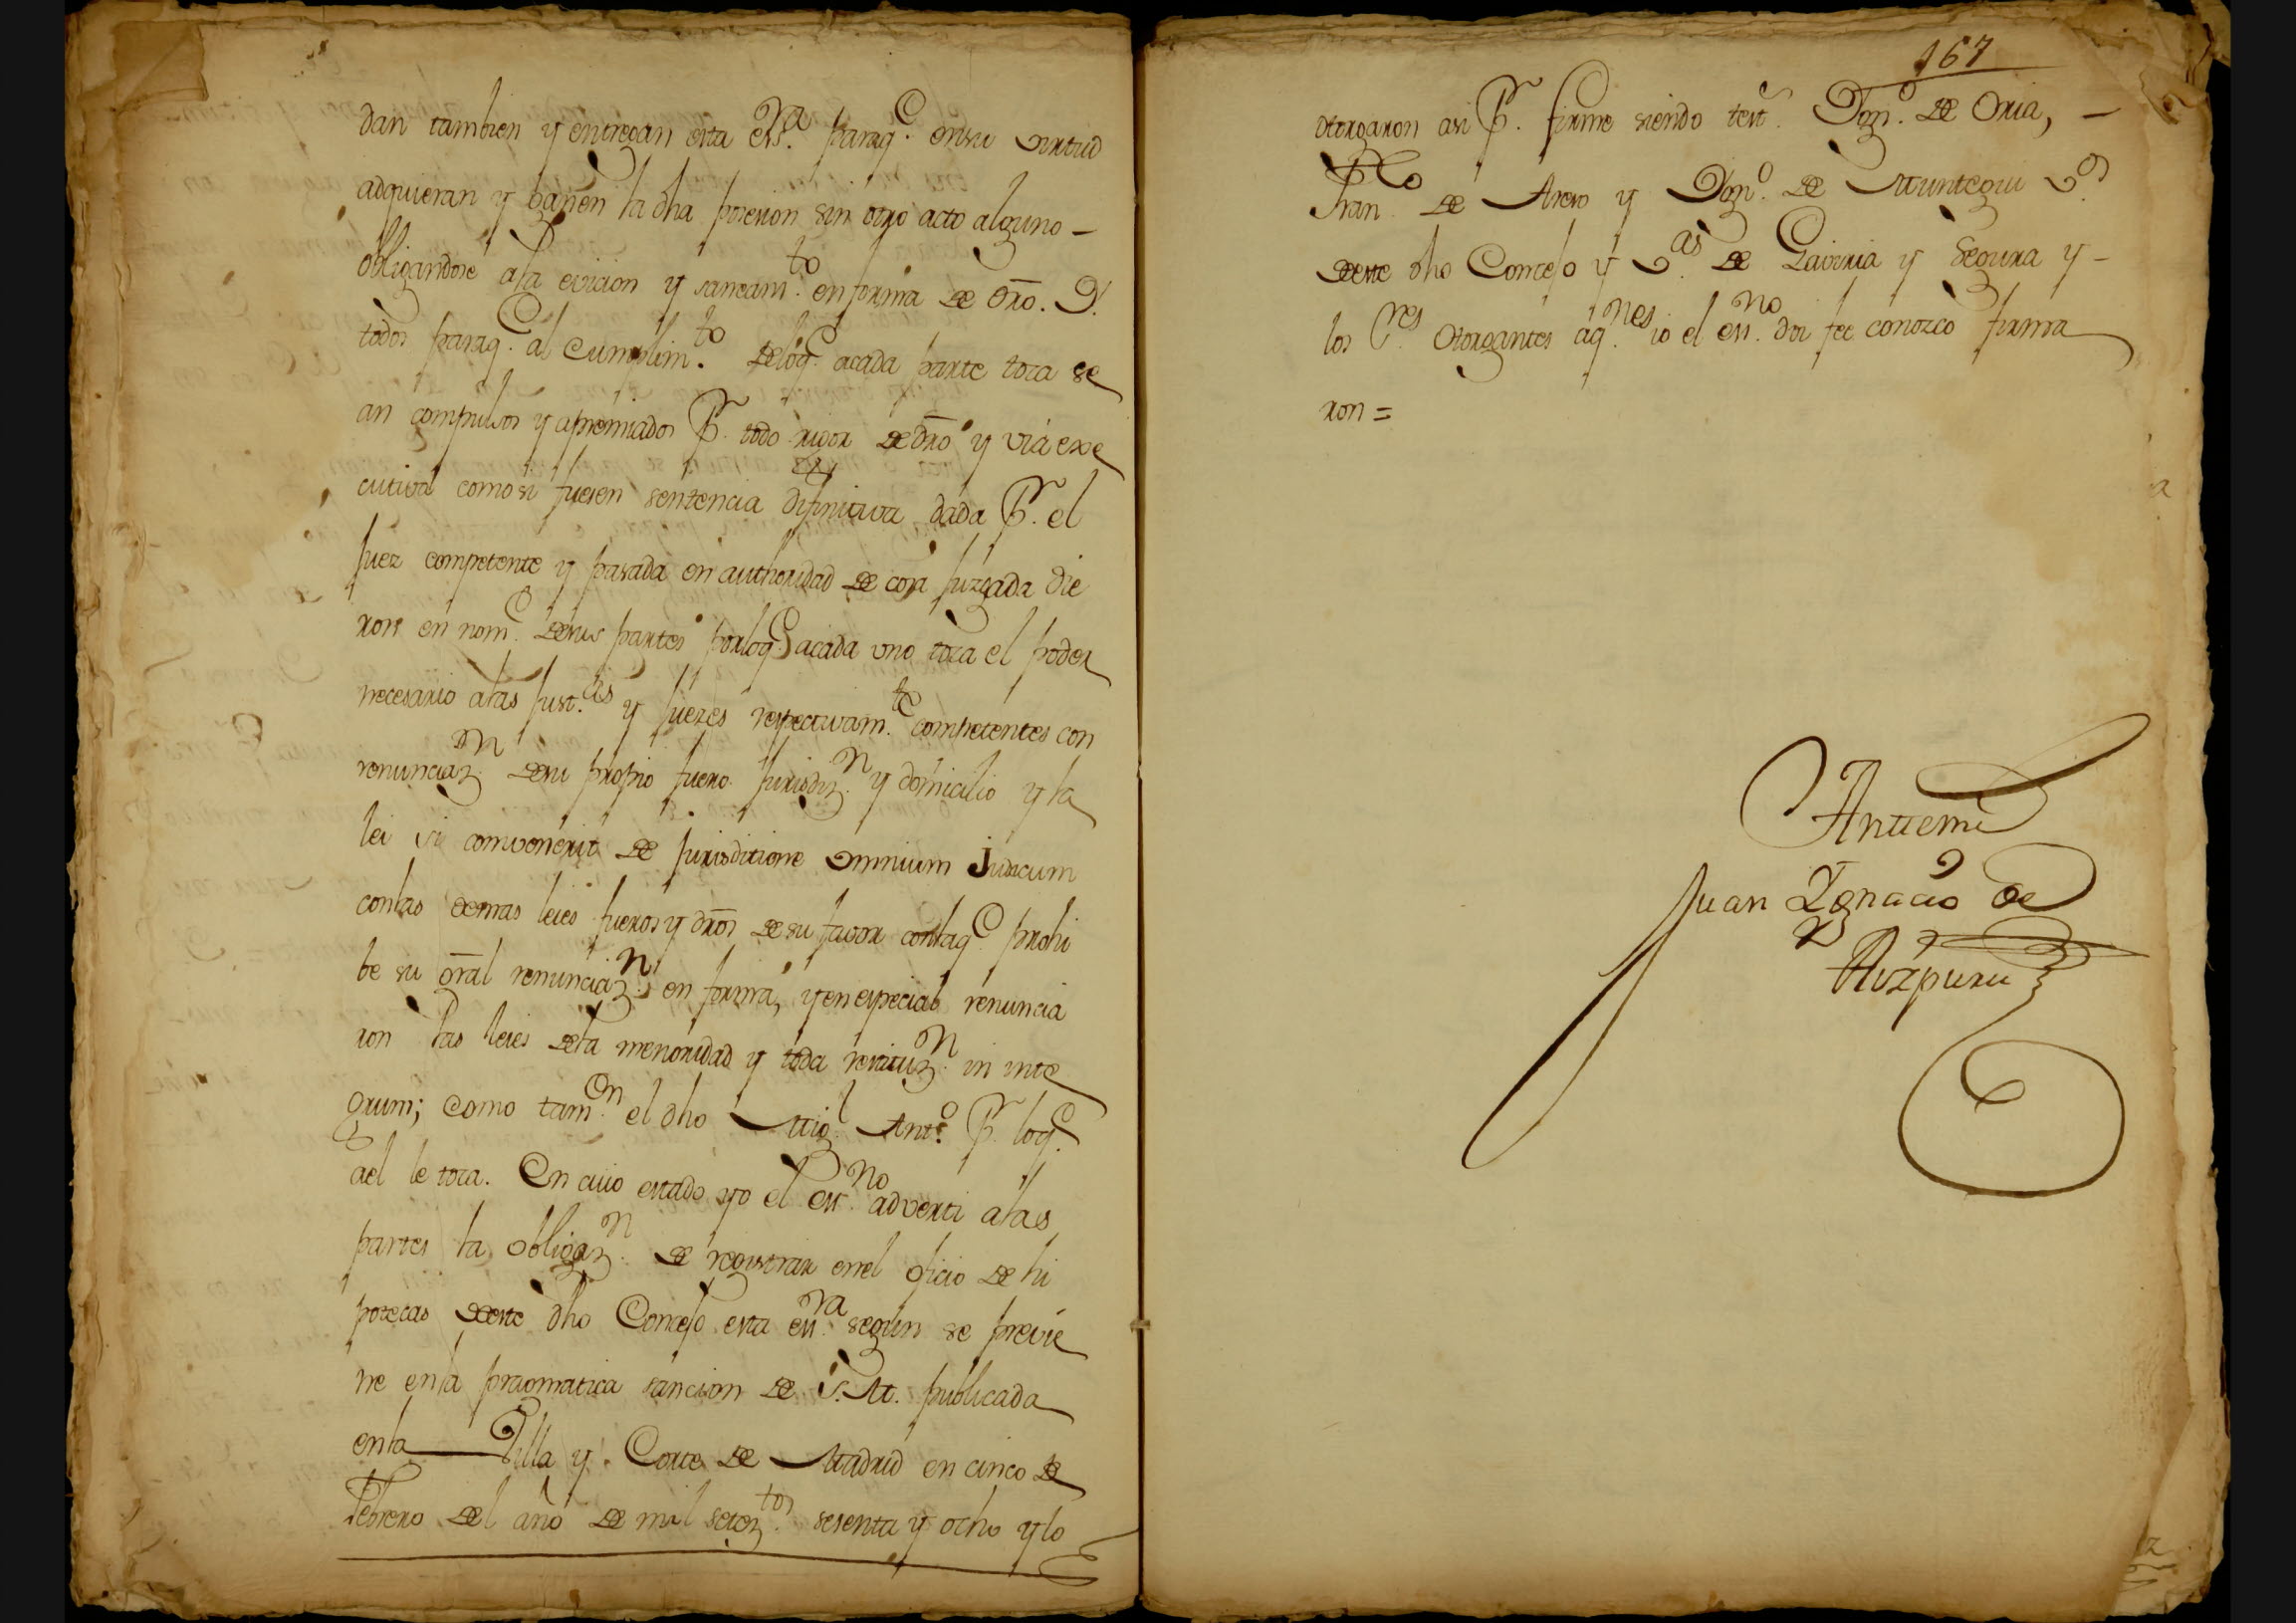 dan tambien y entregan esta ess.ra paraq.e ensu virtud
adquieran y ganen la dha posesion sin otro acto alguno –
obligandose ala eviccion y saneam.to en forma de dro. Y.
todos paraq.e al cumplim.to deloq.e acada parte toca se
an compulsos y apremiados Pr. todo rigor de dro y via exe
cutiva como si fuesen sentencia difinitiva dada Pr. el
Juez competente y pasada en authoridad de cosa Juzgada die
ron en nom.e desus partes porloq.e acada uno toca el poder
necesario alas Just.as y Juezes respectivam.te competentes con
renunciaz.on desu propio fuero Jurisdiz.n y domicilio y la
lei si convenerit de Jurisditione omnium Judicum
conlas demas leies fueros y dros de su favor conlaq.e prohi
be su gral renunciaz.n en forma, y en especial renuncia
ron las leies dela menoridad y toda restituz.n in inte
grum; como tam.en el dho Mig.l Ant.o Pr. loq.e
ael le toca. En cuio estado yo el ess.no adverti alas
partes la obligaz.n de registrar enel oficio de hi
potecas deeste dho Concejo esta ess.ra segun se previe
ne enla pragmatica sancion de S.M. publicada
enla Villa y Corte de Madrid en cinco de
Febrero del año de mil setez.tos sesenta y ocho y lo
167
otorgaron asi Pr. firme siendo test.s Dom.o de Oria, –
Fran.co de Arero y Dom.o de Muntegui v.os
deeste dho Concejo y v.as de Gaviria y Segura y –
los S.res Otorgantes aq.nes io el ess.no doi fee conozco firma
ron =
Antemi
Juan Ignacio de
Aizpuru